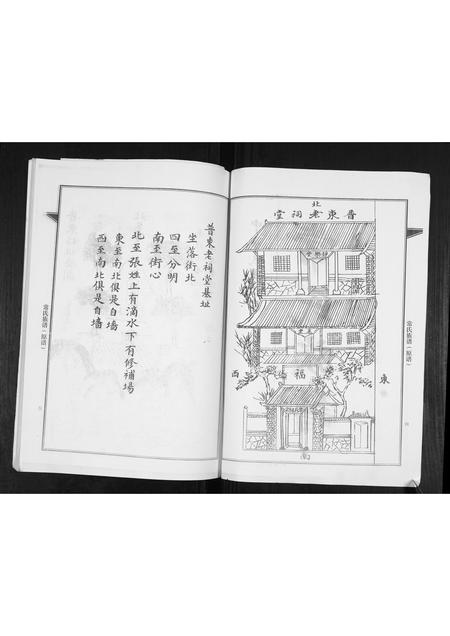 北
晋東老祠堂
西
福
東
南
常氏族谱（原谱）
晋東老祠堂基址
坐落街北
四至分明
南至街心
北至張姓上有滴水下有修補場
東至南北俱是自墻
西至南北俱是自墙
常氏族谱（原谱）